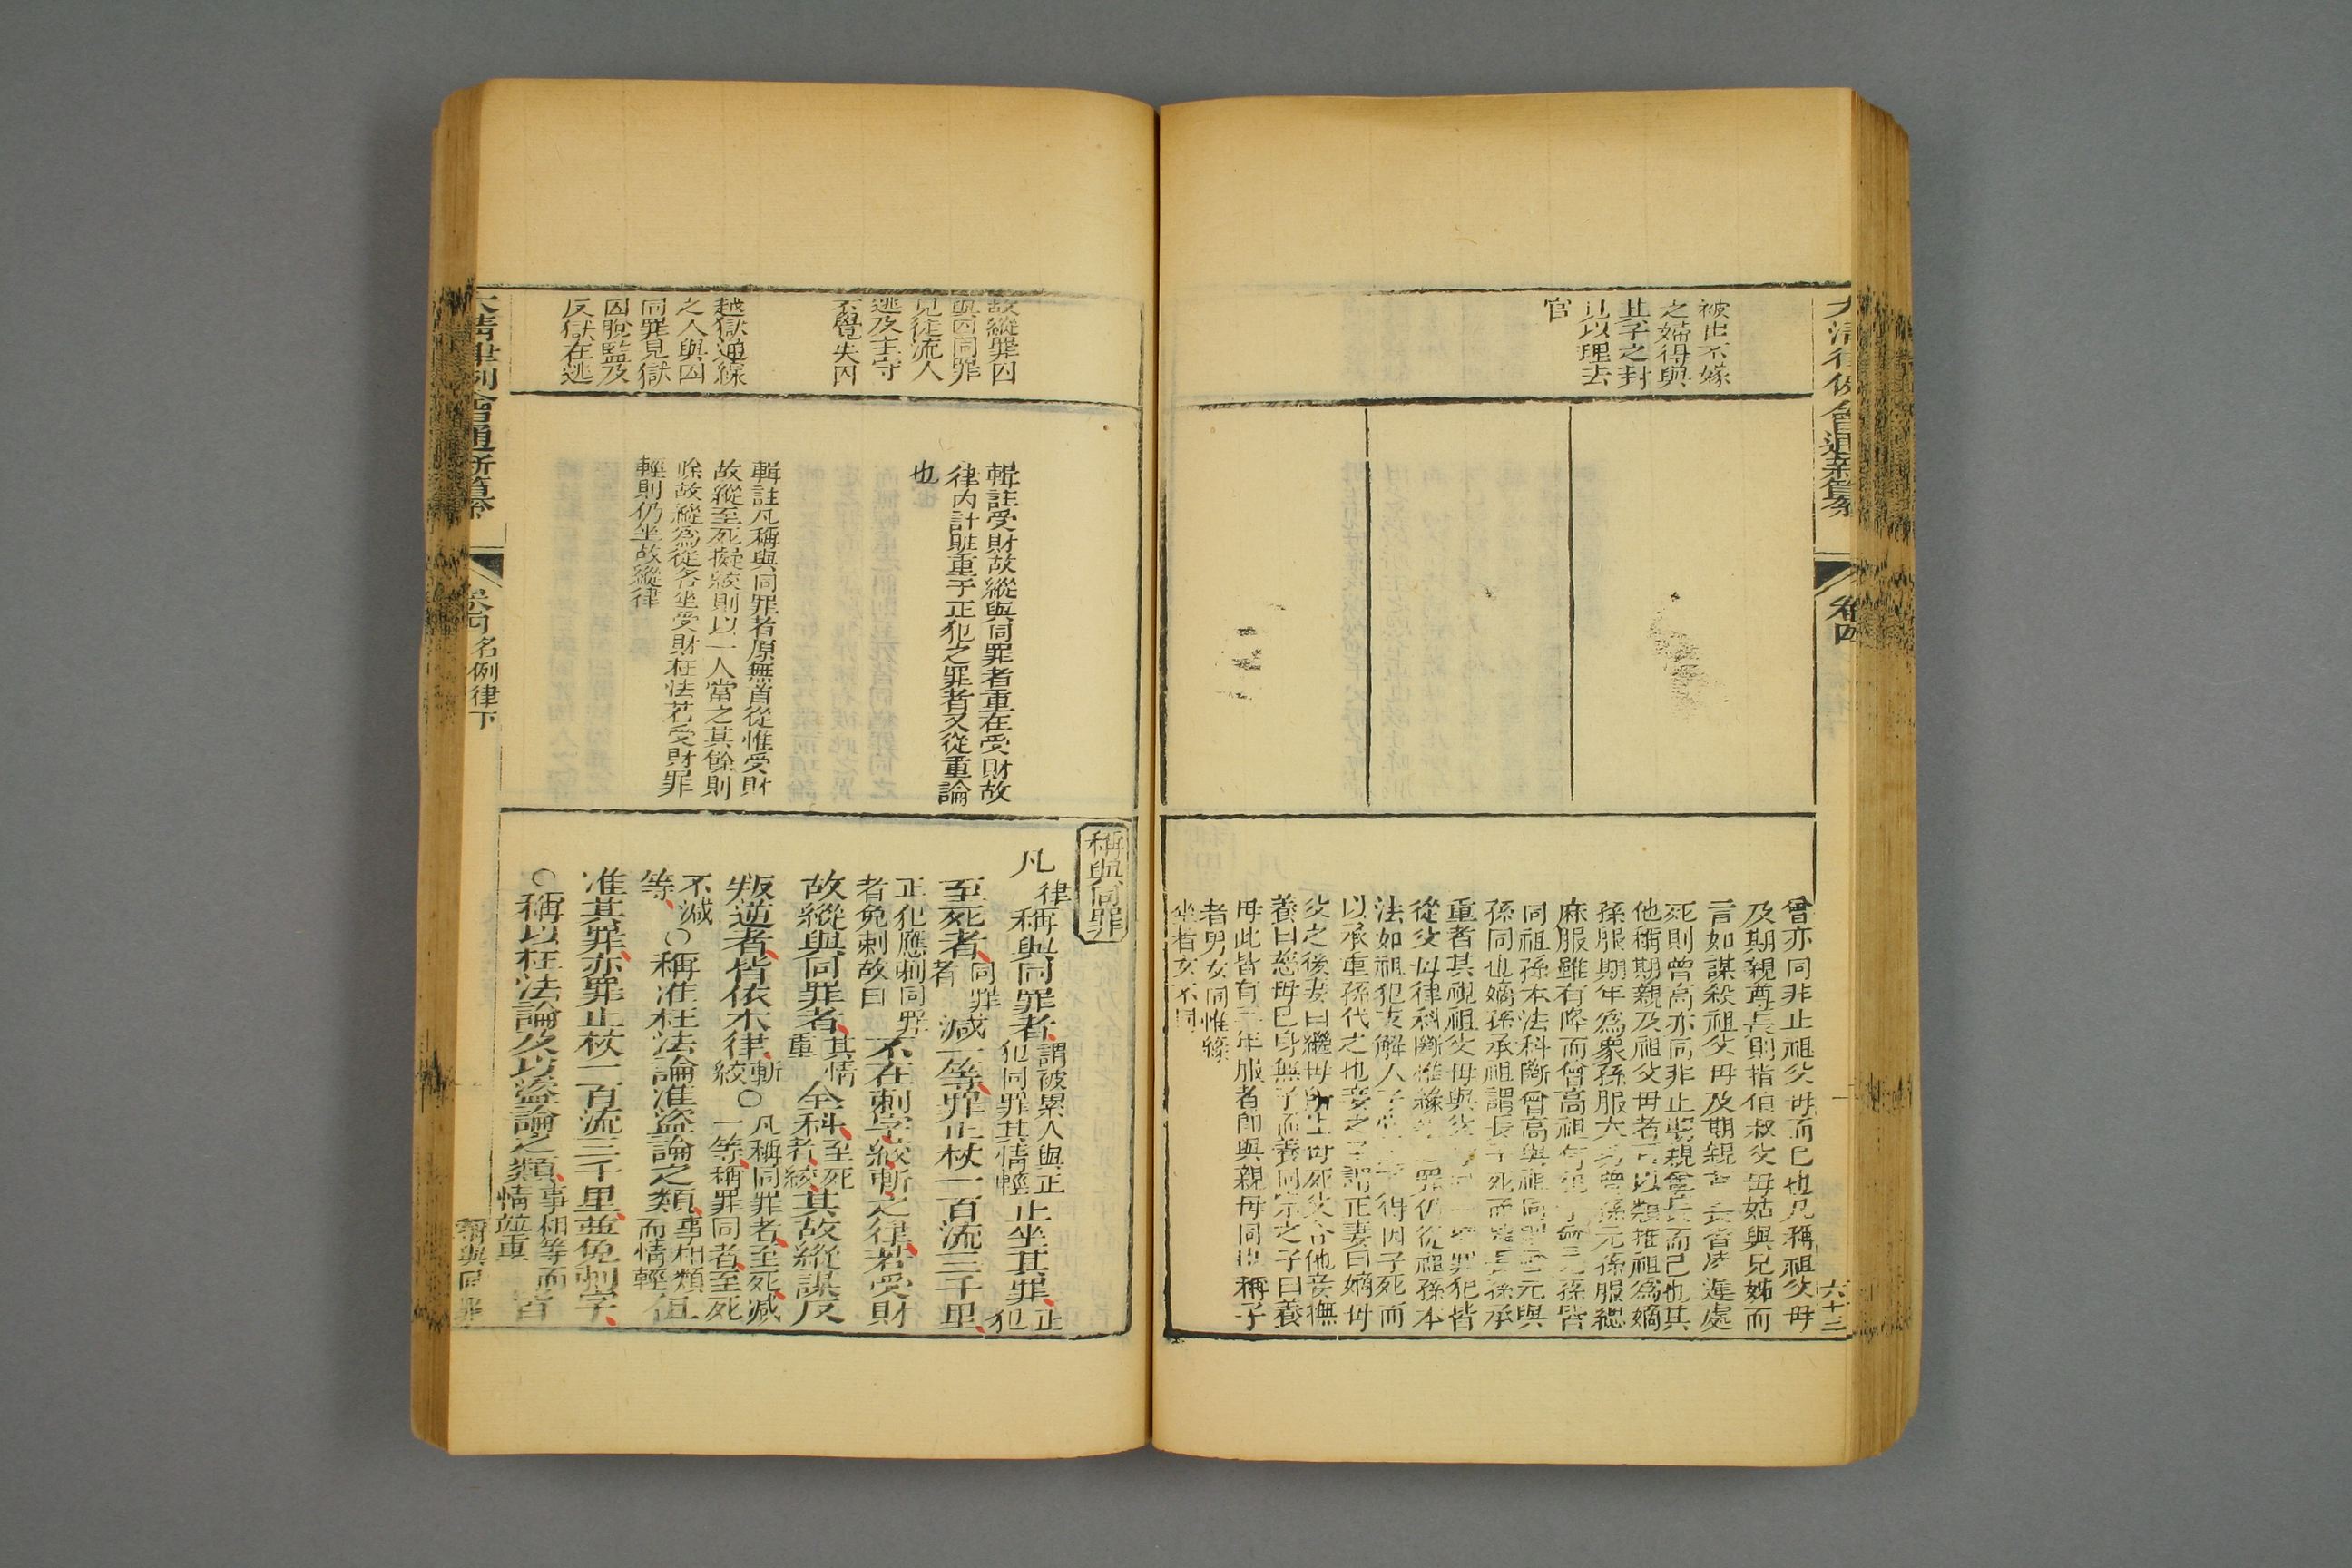 大清律例會通新纂
卷四
六十三
被出不嫁
之婦得與
其子之封
見以理去
官
曾亦同非止祖父母而已也凡稱祖父母
及期親尊長則指伯叔父母姑與兄姊而
言如謀殺祖父母及期親尊長者凌遲處
死則曾高亦同非止期親尊長而已也其
他稱期親及祖父母者可以類推祖為嫡
孫服期年為衆孫服大功曾孫元孫服緦
麻服雖有降而曾高祖有犯曾元孫皆
同祖孫本法科斷曾高與祖同曾元與
孫同也嫡孫承祖謂長子死而嫡長孫承
重者其視祖父母與父母同一應罪犯皆
從父母律科斷惟緣坐之罪仍從祖孫本
法如祖犯反解人子得因子死而
以承重孫代之也妾之子謂正妻曰嫡母
父之後妻曰繼母所生母死父令他妾撫
養曰慈母已身無子而養同宗之子曰養
母此皆有三年服者即與親母同也稱子
者男女同惟緣
坐者女不同
故縱罪囚
與囚同罪
見徒流人
逃及主守
不覺失囚
越獄通線
之人與囚
同罪見獄
囚脫監及
反獄在逃
輯註受財故縱與同罪者重在受財故
律內計贓重于正犯之罪者又從重論
也
輯註凡稱與同罪者原無首從惟受財
故縱至死擬絞則以一人當之其餘則
除故縱為從各坐受財枉法若受財罪
輕則仍坐故縱律
稱與同罪
凡律稱與同罪者謂被累人與正犯同罪其情輕止坐其罪正犯
至死者同罪者減一等罪止杖一百流三千里
正犯應刺同罪者免刺故曰不在刺字絞斬之律若受財
故縱與同罪者其情重全科至死者絞其故縱謀反
叛逆者皆依本律斬絞○凡稱同罪者至死減一等稱罪同者至死
不減等○稱准枉法論准盜論之類事相類而情輕但
准其罪亦罪止杖一百流三千里並免刺字
○稱以枉法論及以盜論之類事相等而情並重皆
大清律例會通新纂
卷四名例律下
稱與同罪